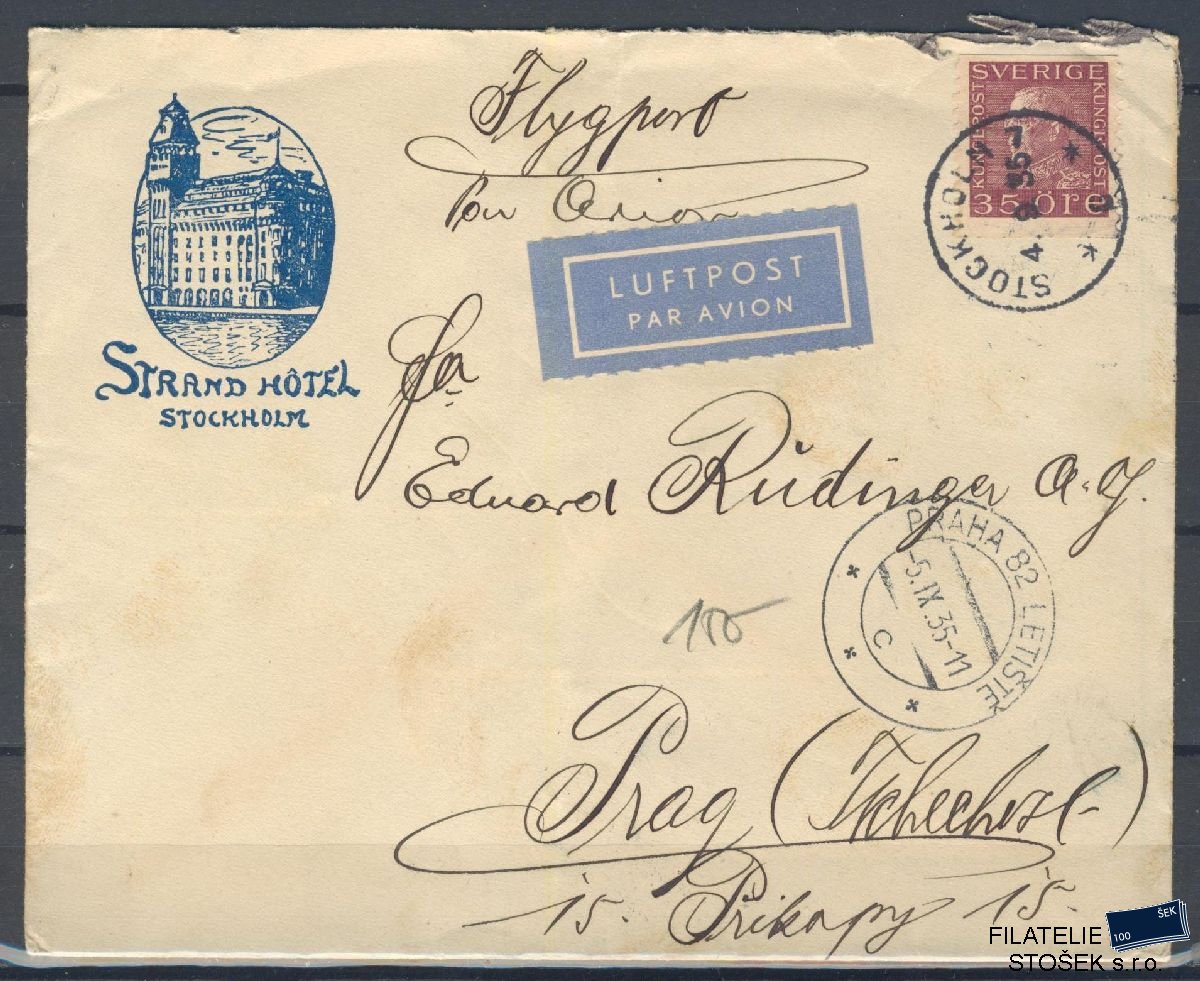 Flygpost
Par Avion
SVERIGE
KUNGL POST
KUNGL POST
35 ÖRE
STOCKHOLM
4.9.35-7
LUFTPOST
PAR AVION
STRAND HÔTEL
STOCKHOLM
Fa
Eduard Rüdinger A.G.
PRAHA 82 LETIŠTĚ
-5.IX.35-11
C
100
Prag (Tschechosl.)
15. Přikopy 15.
100 ŠEK
FILATELIE
STOŠEK s.r.o.